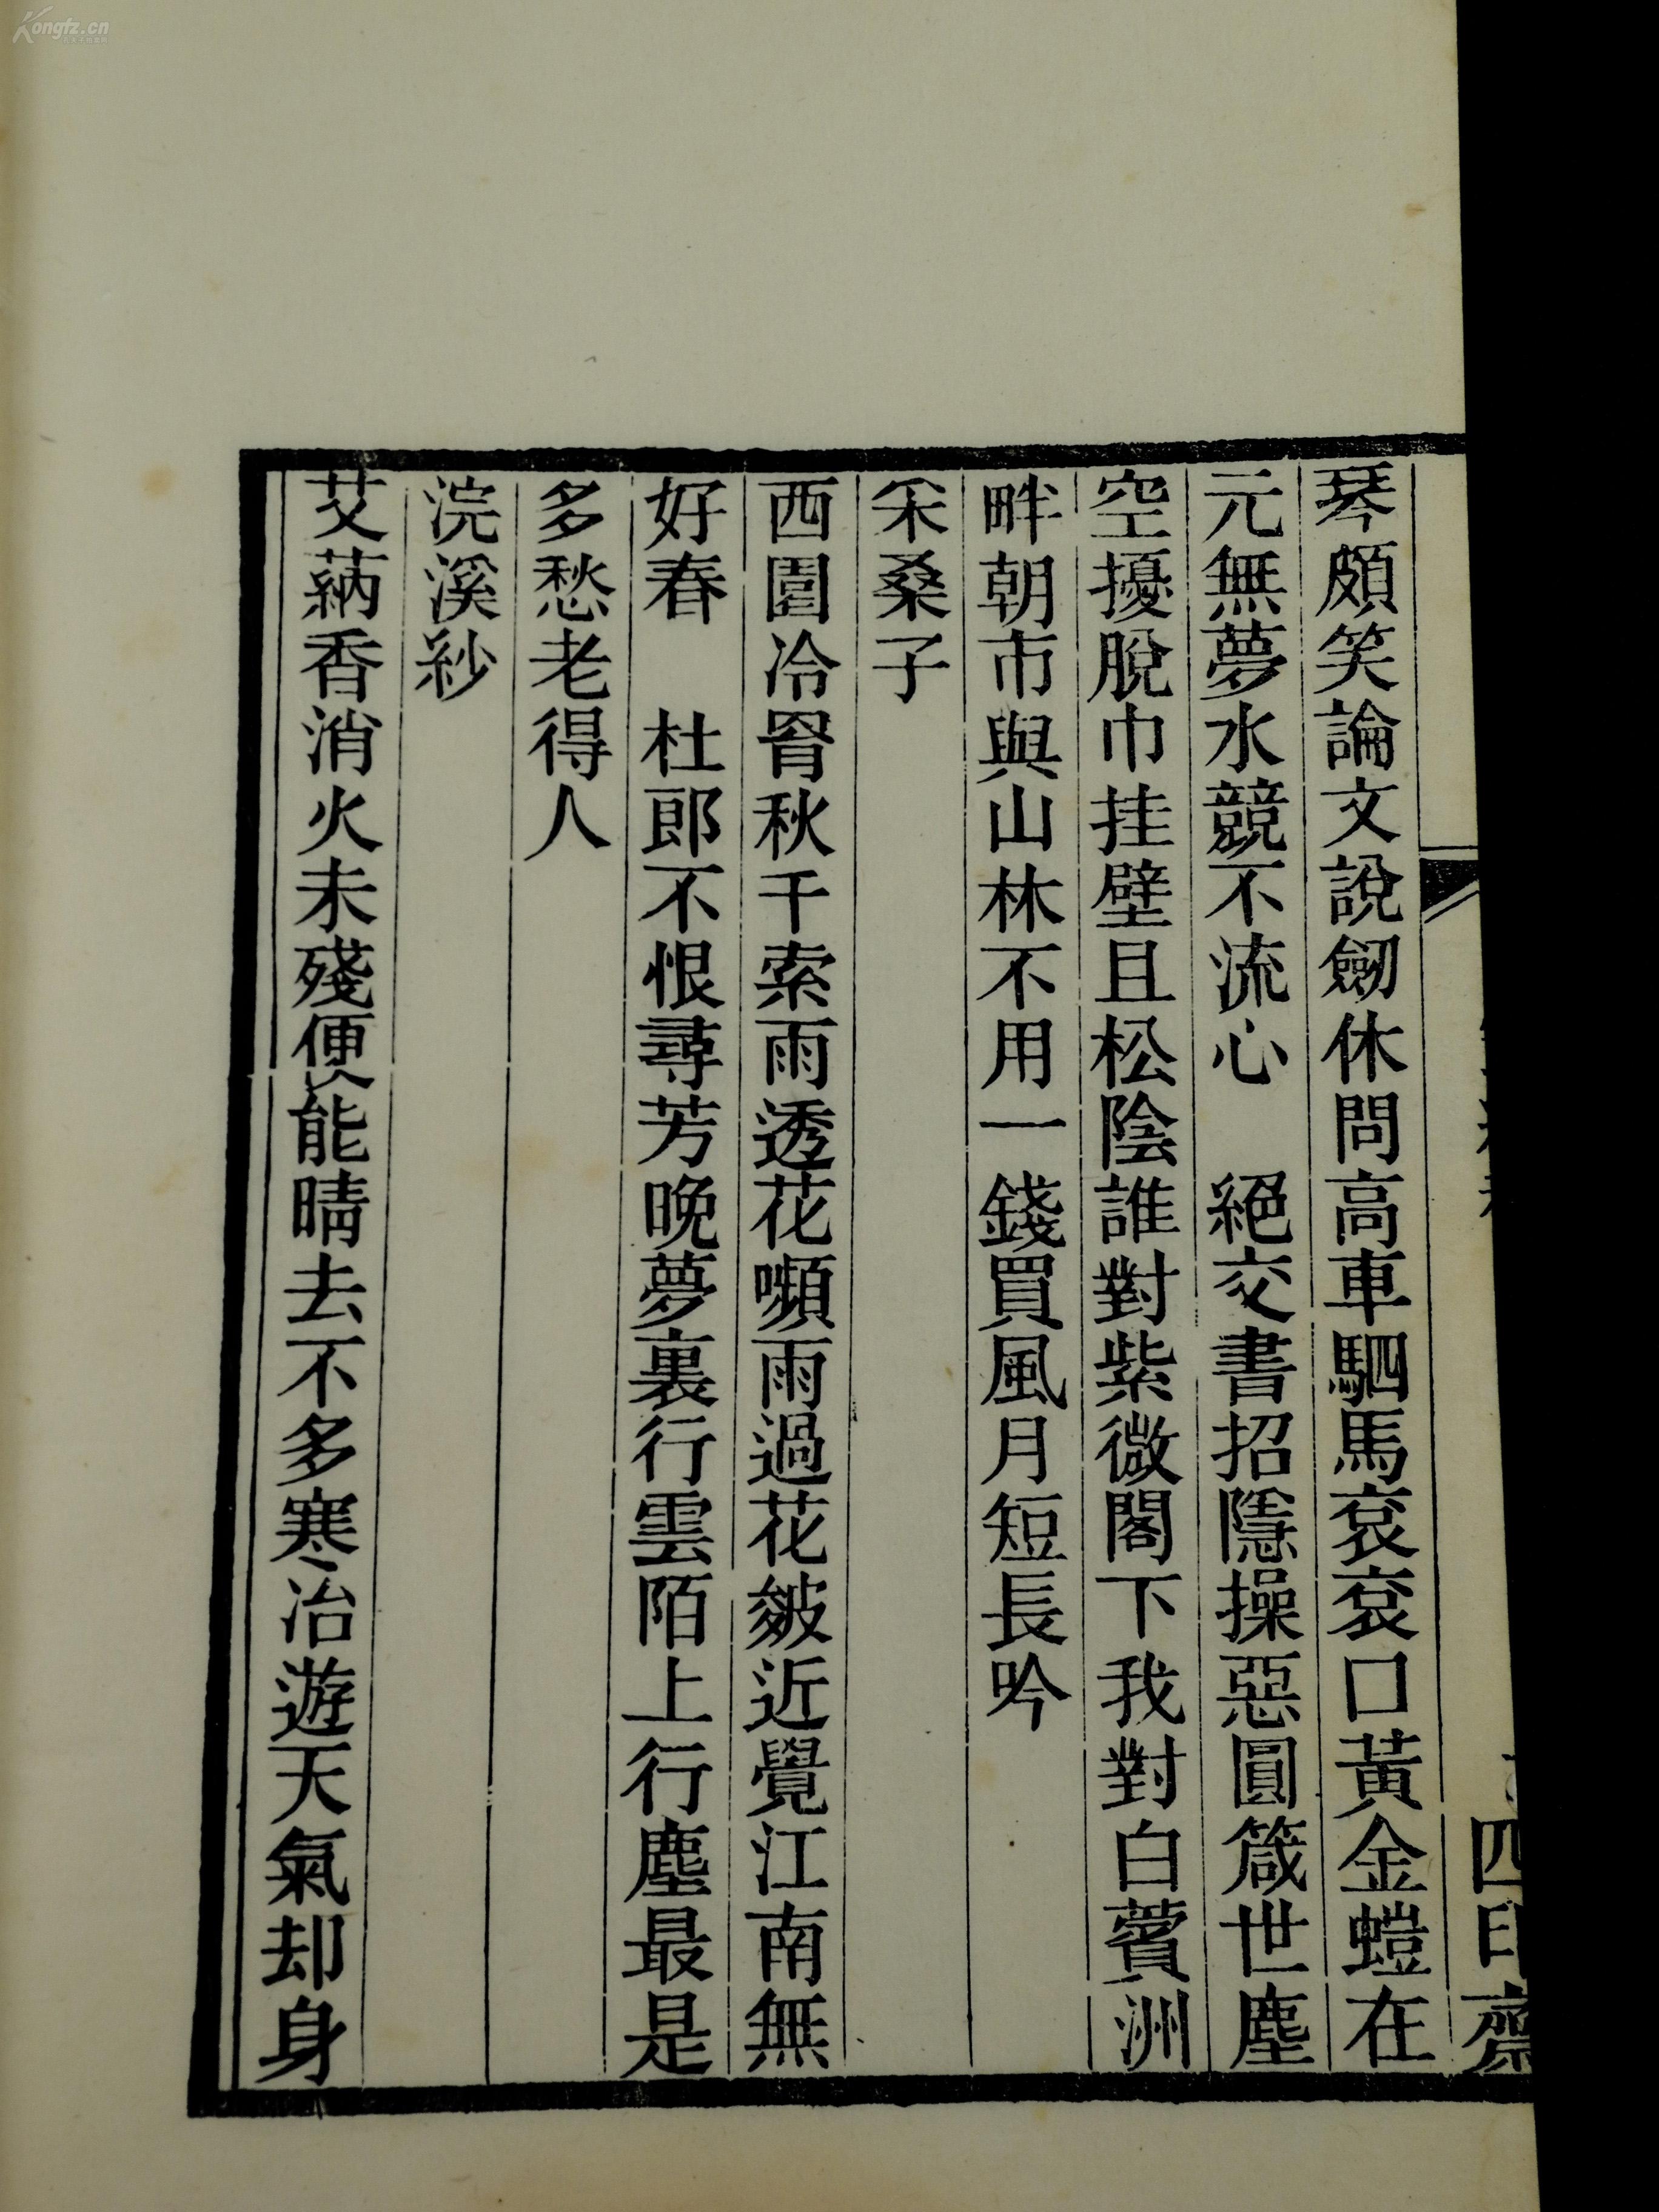 琴頗笑論文說劒休問高車駟馬袞袞口黃金螘在
元無夢水競不流心　絕交書招隱操惡圓箴世塵
空擾脫巾挂壁且松陰誰對紫微閣下我對白蘋洲
畔朝市與山林不用一錢買風月短長吟
采桑子
西園冷罥秋千索雨透花嚬雨過花皴近覺江南無
好春　杜郎不恨尋芳晚夢裏行雲陌上行塵最是
多愁老得人
浣溪紗
艾蒳香消火未殘便能晴去不多寒冶遊天氣却身
四印齋
Kongfz.cn